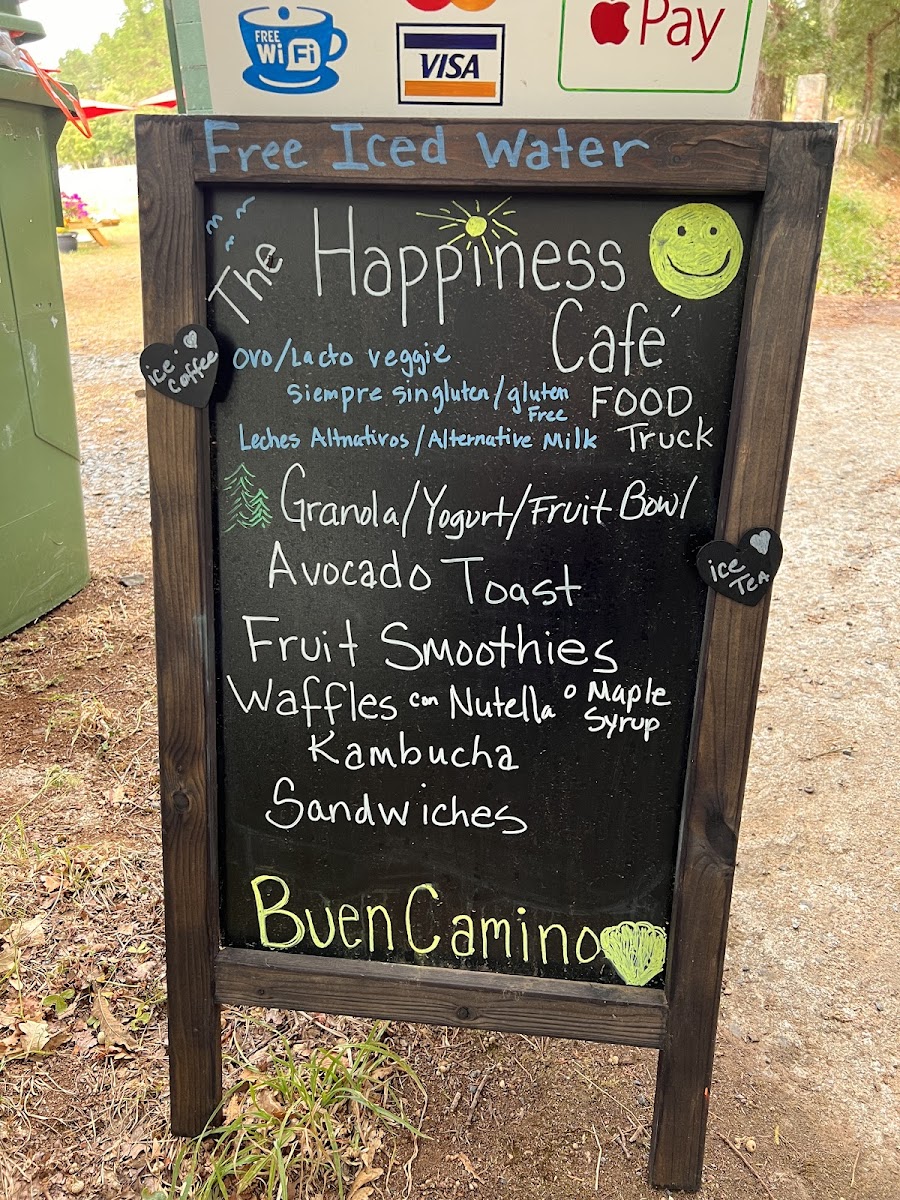 FREE
WiFi
VISA
Pay
Free Iced Water
The Happiness
Café
FOOD
Truck
ice
coffee
ovo/Lacto veggie
siempre singluten/gluten
Free
Leches Altnativos/Alternative Milk
Granola/Yogurt/Fruit Bowl
ice
TEA
Avocado Toast
Fruit Smoothies
Waffles con Nutella o Maple
Syrup
Kambucha
Sandwiches
Buen Camino